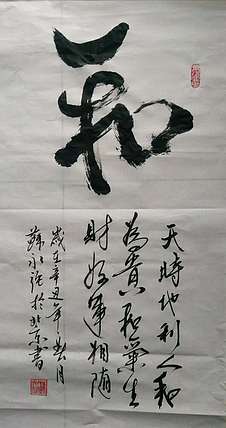 和
天時地利人和
為貴和氣生
財好運相随
歲在辛丑年春月
蘇永強於北京書